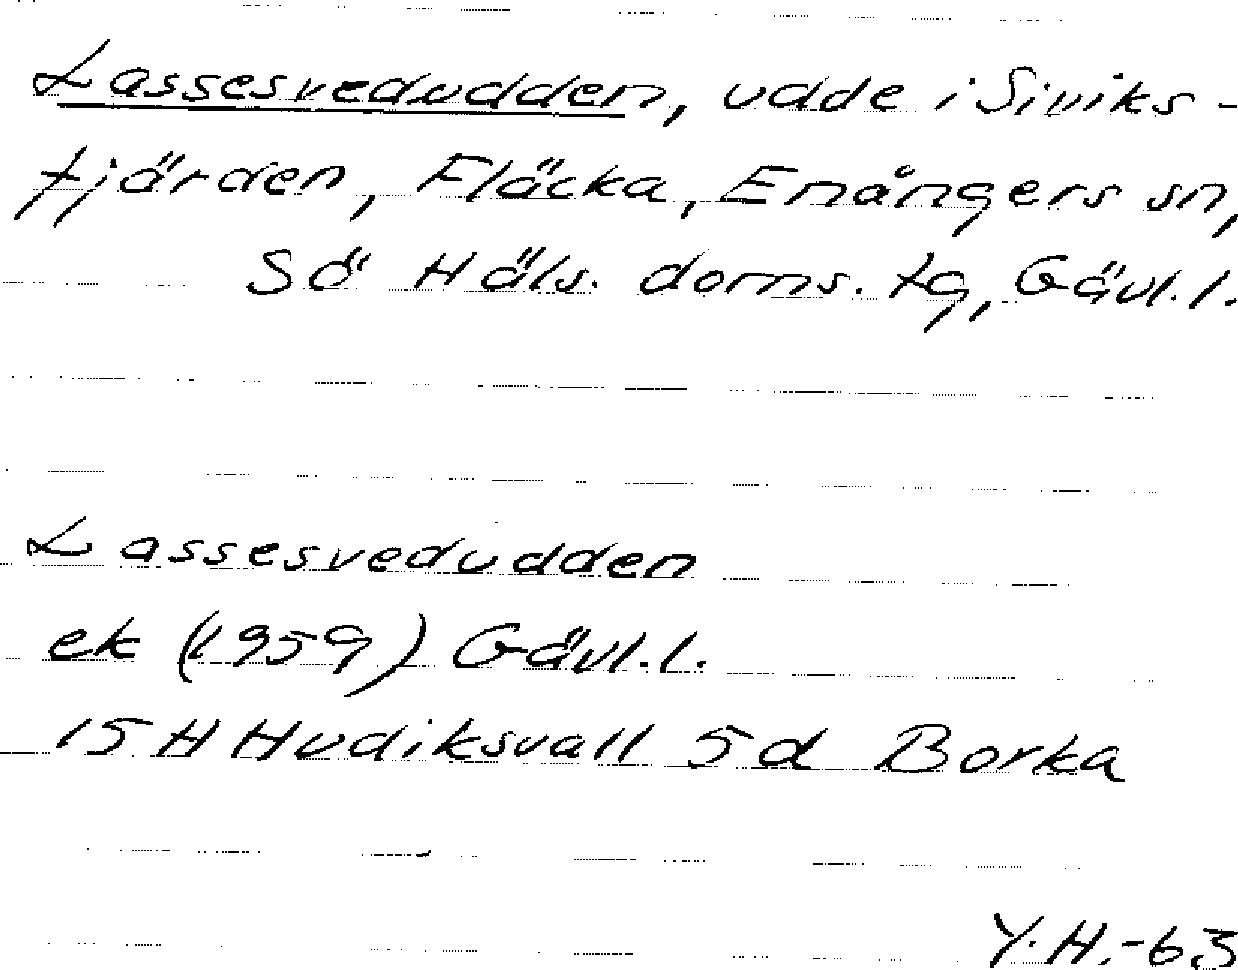 Lassesvedudden, udde i Siviks-
fjärden, Fläcka, Enångers sn,
Sö Häls. doms. tg, Gävl. l.
Lassesvedudden
ek (1959) Gävl. l.
15 H Hudiksvall 5d Borka
Y.H.-63